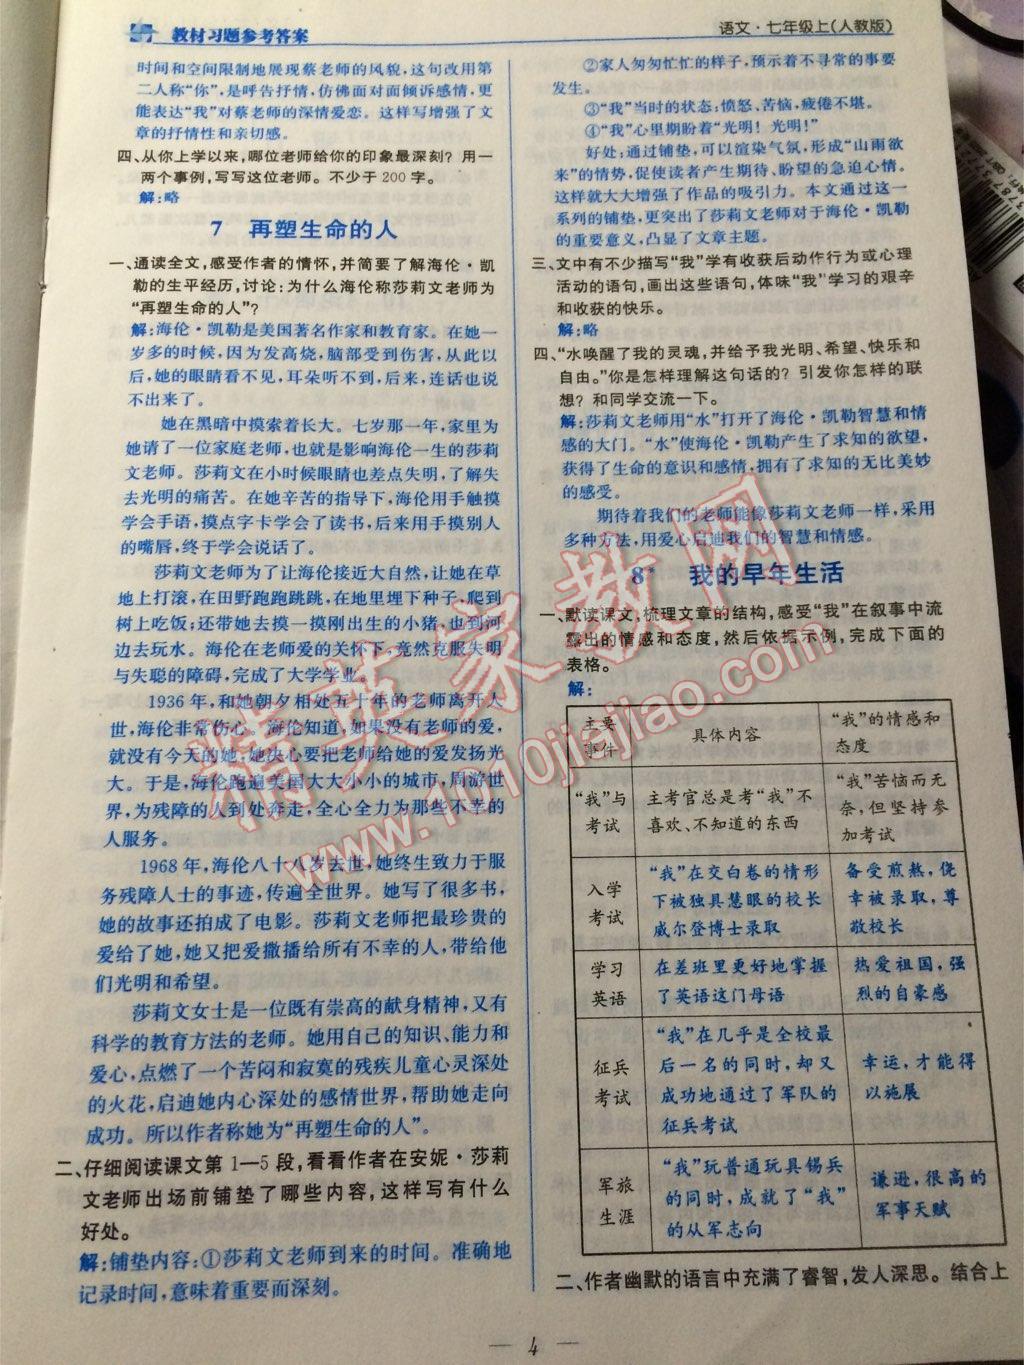 教材习题参考答案
语文·七年级上(人教版)
时间和空间限制地展现蔡老师的风貌,这句改用第
二人称“你”,是呼告抒情,仿佛面对面倾诉感情,更
能表达“我”对蔡老师的深情爱恋。这样写增强了文
章的抒情性和亲切感。
四、从你上学以来,哪位老师给你的印象最深刻?用一
两个事例,写写这位老师。不少于200字。
解:略
7 再塑生命的人
一、通读全文,感受作者的情怀,并简要了解海伦·凯
勒的生平经历,讨论:为什么海伦称莎莉文老师为
“再塑生命的人”?
解:海伦·凯勒是美国著名作家和教育家。在她一
岁多的时候,因为发高烧,脑部受到伤害,从此以
后,她的眼睛看不见,耳朵听不到,后来,连话也说
不出来了。
她在黑暗中摸索着长大。七岁那一年,家里为
她请了一位家庭老师,也就是影响海伦一生的莎莉
文老师。莎莉文在小时候眼睛也差点失明,了解失
去光明的痛苦。在她辛苦的指导下,海伦用手触摸
学会手语,摸点字卡学会了读书,后来用手摸别人
的嘴唇,终于学会说话了。
莎莉文老师为了让海伦接近大自然,让她在草
地上打滚,在田野跑跑跳跳,在地里埋下种子,爬到
树上吃饭;还带她去摸一摸刚出生的小猪,也到河
边去玩水。海伦在老师爱的关怀下,竟然克服失明
与失聪的障碍,完成了大学学业。
1936年,和她朝夕相处五十年的老师离开人
世,海伦非常伤心。海伦知道,如果没有老师的爱,
就没有今天的她,她决心要把老师给她的爱发扬光
大。于是,海伦跑遍美国大大小小的城市,周游世
界,为残障的人到处奔走,全心全力为那些不幸的
人服务。
1968年,海伦八十八岁去世,她终生致力于服
务残障人士的事迹,传遍全世界。她写了很多书,
她的故事还拍成了电影。莎莉文老师把最珍贵的
爱给了她,她又把爱撒播给所有不幸的人,带给他
们光明和希望。
莎莉文女士是一位既有崇高的献身精神,又有
科学的教育方法的老师。她用自己的知识、能力和
爱心,点燃了一个苦闷和寂寞的残疾儿童心灵深处
的火花,启迪她内心深处的感情世界,帮助她走向
成功。所以作者称她为“再塑生命的人”。
二、仔细阅读课文第1—5段,看看作者在安妮·莎莉
文老师出场前铺垫了哪些内容,这样写有什么
好处。
解:铺垫内容:①莎莉文老师到来的时间。准确地
记录时间,意味着重要而深刻。
②家人匆匆忙忙的样子,预示着不寻常的事要
发生。
③“我”当时的状态:愤怒、苦恼,疲倦不堪。
④“我”心里期盼着“光明!光明!”
好处:通过铺垫,可以渲染气氛,形成“山雨欲
来”的情势,促使读者产生期待、盼望的急迫心情。
这样就大大增强了作品的吸引力。本文通过这一
系列的铺垫,更突出了莎莉文老师对于海伦·凯勒
的重要意义,凸显了文章主题。
三、文中有不少描写“我”学有收获后动作行为或心理
活动的语句,画出这些语句,体味“我”学习的艰辛
和收获的快乐。
解:略
四、“水唤醒了我的灵魂,并给予我光明、希望、快乐和
自由。”你是怎样理解这句话的?引发你怎样的联
想?和同学交流一下。
解:莎莉文老师用“水”打开了海伦·凯勒智慧和情
感的大门。“水”使海伦·凯勒产生了求知的欲望,
获得了生命的意识和感情,拥有了求知的无比美妙
的感受。
期待着我们的老师能像莎莉文老师一样,采用
多种方法,用爱心启迪我们的智慧和情感。
8* 我的早年生活
一、默读课文,梳理文章的结构,感受“我”在叙事中流
露出的情感和态度,然后依据示例,完成下面的
表格。
解:
主要
事件
具体内容
“我”的情感和
态度
“我”与
考试
主考官总是考“我”不
喜欢、不知道的东西
“我”苦恼而无
奈,但坚持参
加考试
入学
考试
“我”在交白卷的情形
下被独具慧眼的校长
威尔登博士录取
备受煎熬,侥
幸被录取,尊
敬校长
学习
英语
在差班里更好地掌握
了英语这门母语
热爱祖国,强
烈的自豪感
征兵
考试
“我”在几乎是全校最
后一名的同时,却又
成功地通过了军队的
征兵考试
幸运,才能得
以施展
军旅
生涯
“我”玩普通玩具锡兵
的同时,成就了“我”
的从军志向
谦逊,很高的
军事天赋
二、作者幽默的语言中充满了睿智,发人深思。结合上
— 4 —
精英家教网
www.1010jiajiao.com